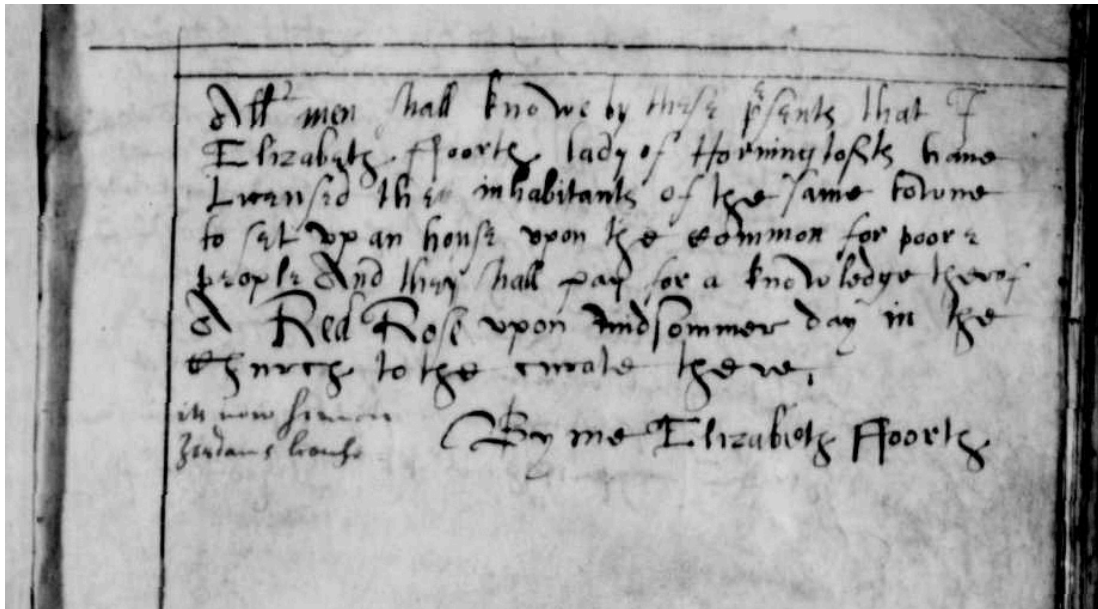 All men shall knowe by these p̃sents that I
Elizabeth ffoorth lady of Horningtofth haue
Licensed the inhabitants of the same towne
to set vp an house vpon the common for poore
people And they shall pay for a knowledge therof
A Red Rose vpon midsommer day in the
Church to the curate there,
it now Simon
Jordans house
By me Elizabeth ffoorth